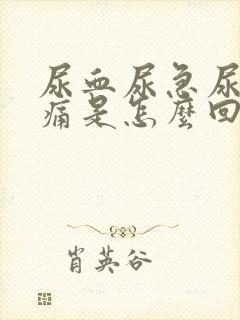 尿血尿急尿
痛是怎麼回
肖英谷